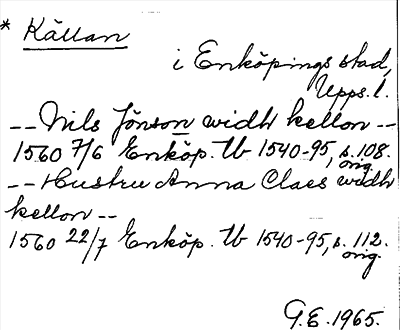 * Källan
i Enköpings stad,
Upps. l.
-- Nils Jönson widh kellon --
1560 7/6 Enköp. tb 1540-95, s. 108.
orig.
-- Hustru Anna Claes widh
kellon --
1560 22/7 Enköp. tb 1540-95, s. 112.
orig.
G.E. 1965.